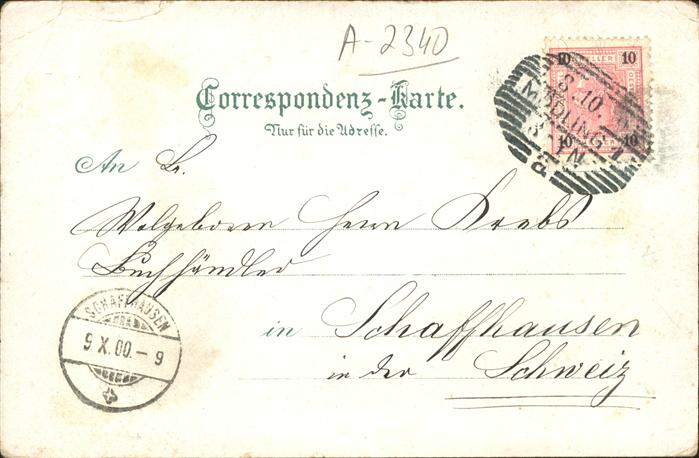 A-2340
10 HELLER 10
8.10
MÖDLING 1
10 10
Correspondenz-Karte.
Nur für die Adresse.
An Sr.
Wolgeboren Herrn Krebs
Buchhändler
in Schaffhausen
in der Schweiz
SCHAFFHAUSEN
9.X.00.-9